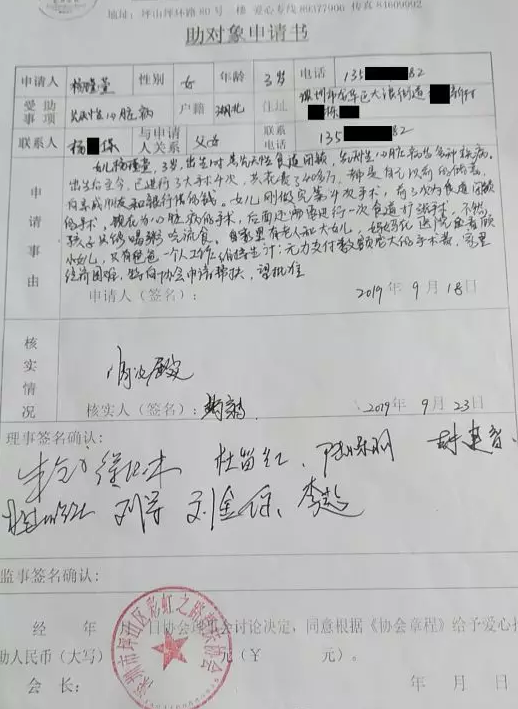 地址：坪山坪环路80号 楼 爱心专线89377900 传真
助对象申请书
申请人 杨 萱 性别 女 年龄 3岁 电话 135 82
受助事项 先天性心脏病 户籍 湖北 住址 深圳市龙华区大浪街道 新村 栋
联系人 杨 保 与申请人关系 父女 联系电话 135 82
申请事由
女儿杨 萱，3岁，出生时患先天性食道闭锁，先天性心脏病等多种疾病。
出生后至今，已进行了大手术4次，共花费了40多万，都是自己以前的储蓄，
向亲戚朋友和银行借的钱。女儿刚做完第4次手术，前3次为食道闭锁
的手术，现在为心脏病的手术，后面还需要进行一次食道扩张手术，不然
孩子只能喝粥吃流食。自家里有老人和大女儿，妈妈
小女儿，只有爸爸一个人工作 维持生计，无力支付数额庞大的手术费，家里
经济困难，特向协会申请帮扶，望批准
申请人（签名）： 2019年9月18日
核实情况
情况属实
核实人（签名）： 2019年9月23日
理事签名确认：
刘 刘金保、李
监事签名确认：
经 年 月 日协会理事会讨论决定，同意根据《协会章程》给予爱心
助人民币（大写） 元（￥ 元）。
会 长： 年 月 日
深圳市坪山区彩虹之 协会